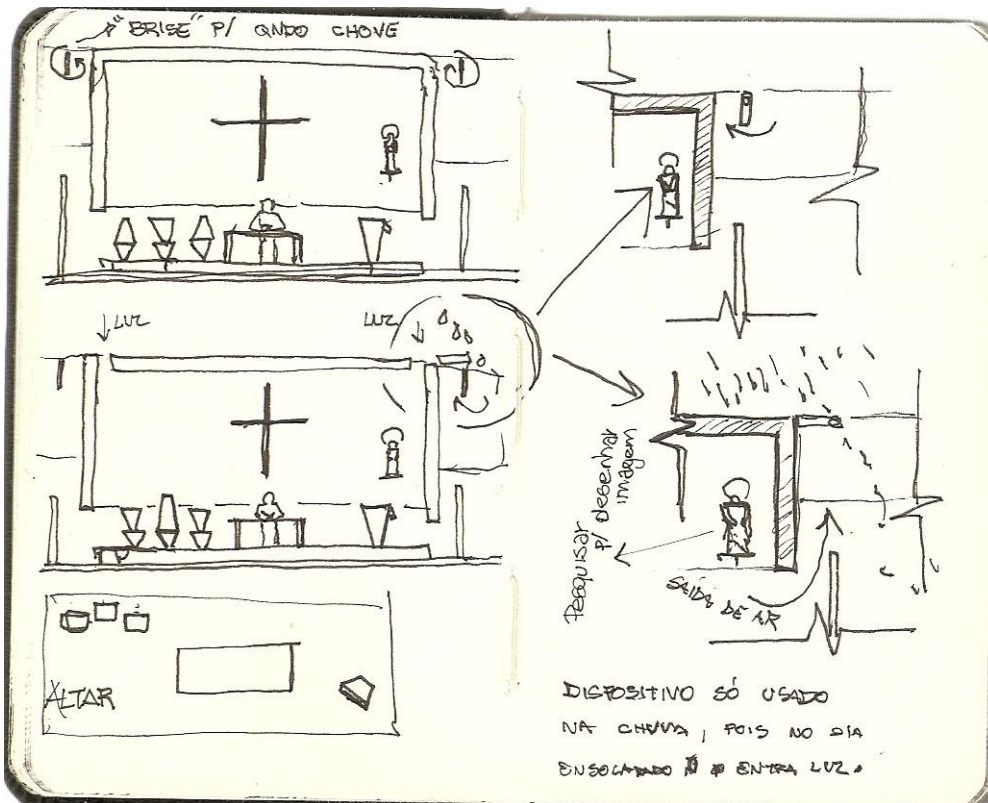 "BRISE" P/ QNDO CHOVE
LUZ
LUZ
ALTAR
Pesquisar
p/ desenhar
imagem
SAÍDA DE AR
DISPOSITIVO SÓ USADO
NA CHUVA, POIS NO DIA
ENSOLARADO ENTRA LUZ.